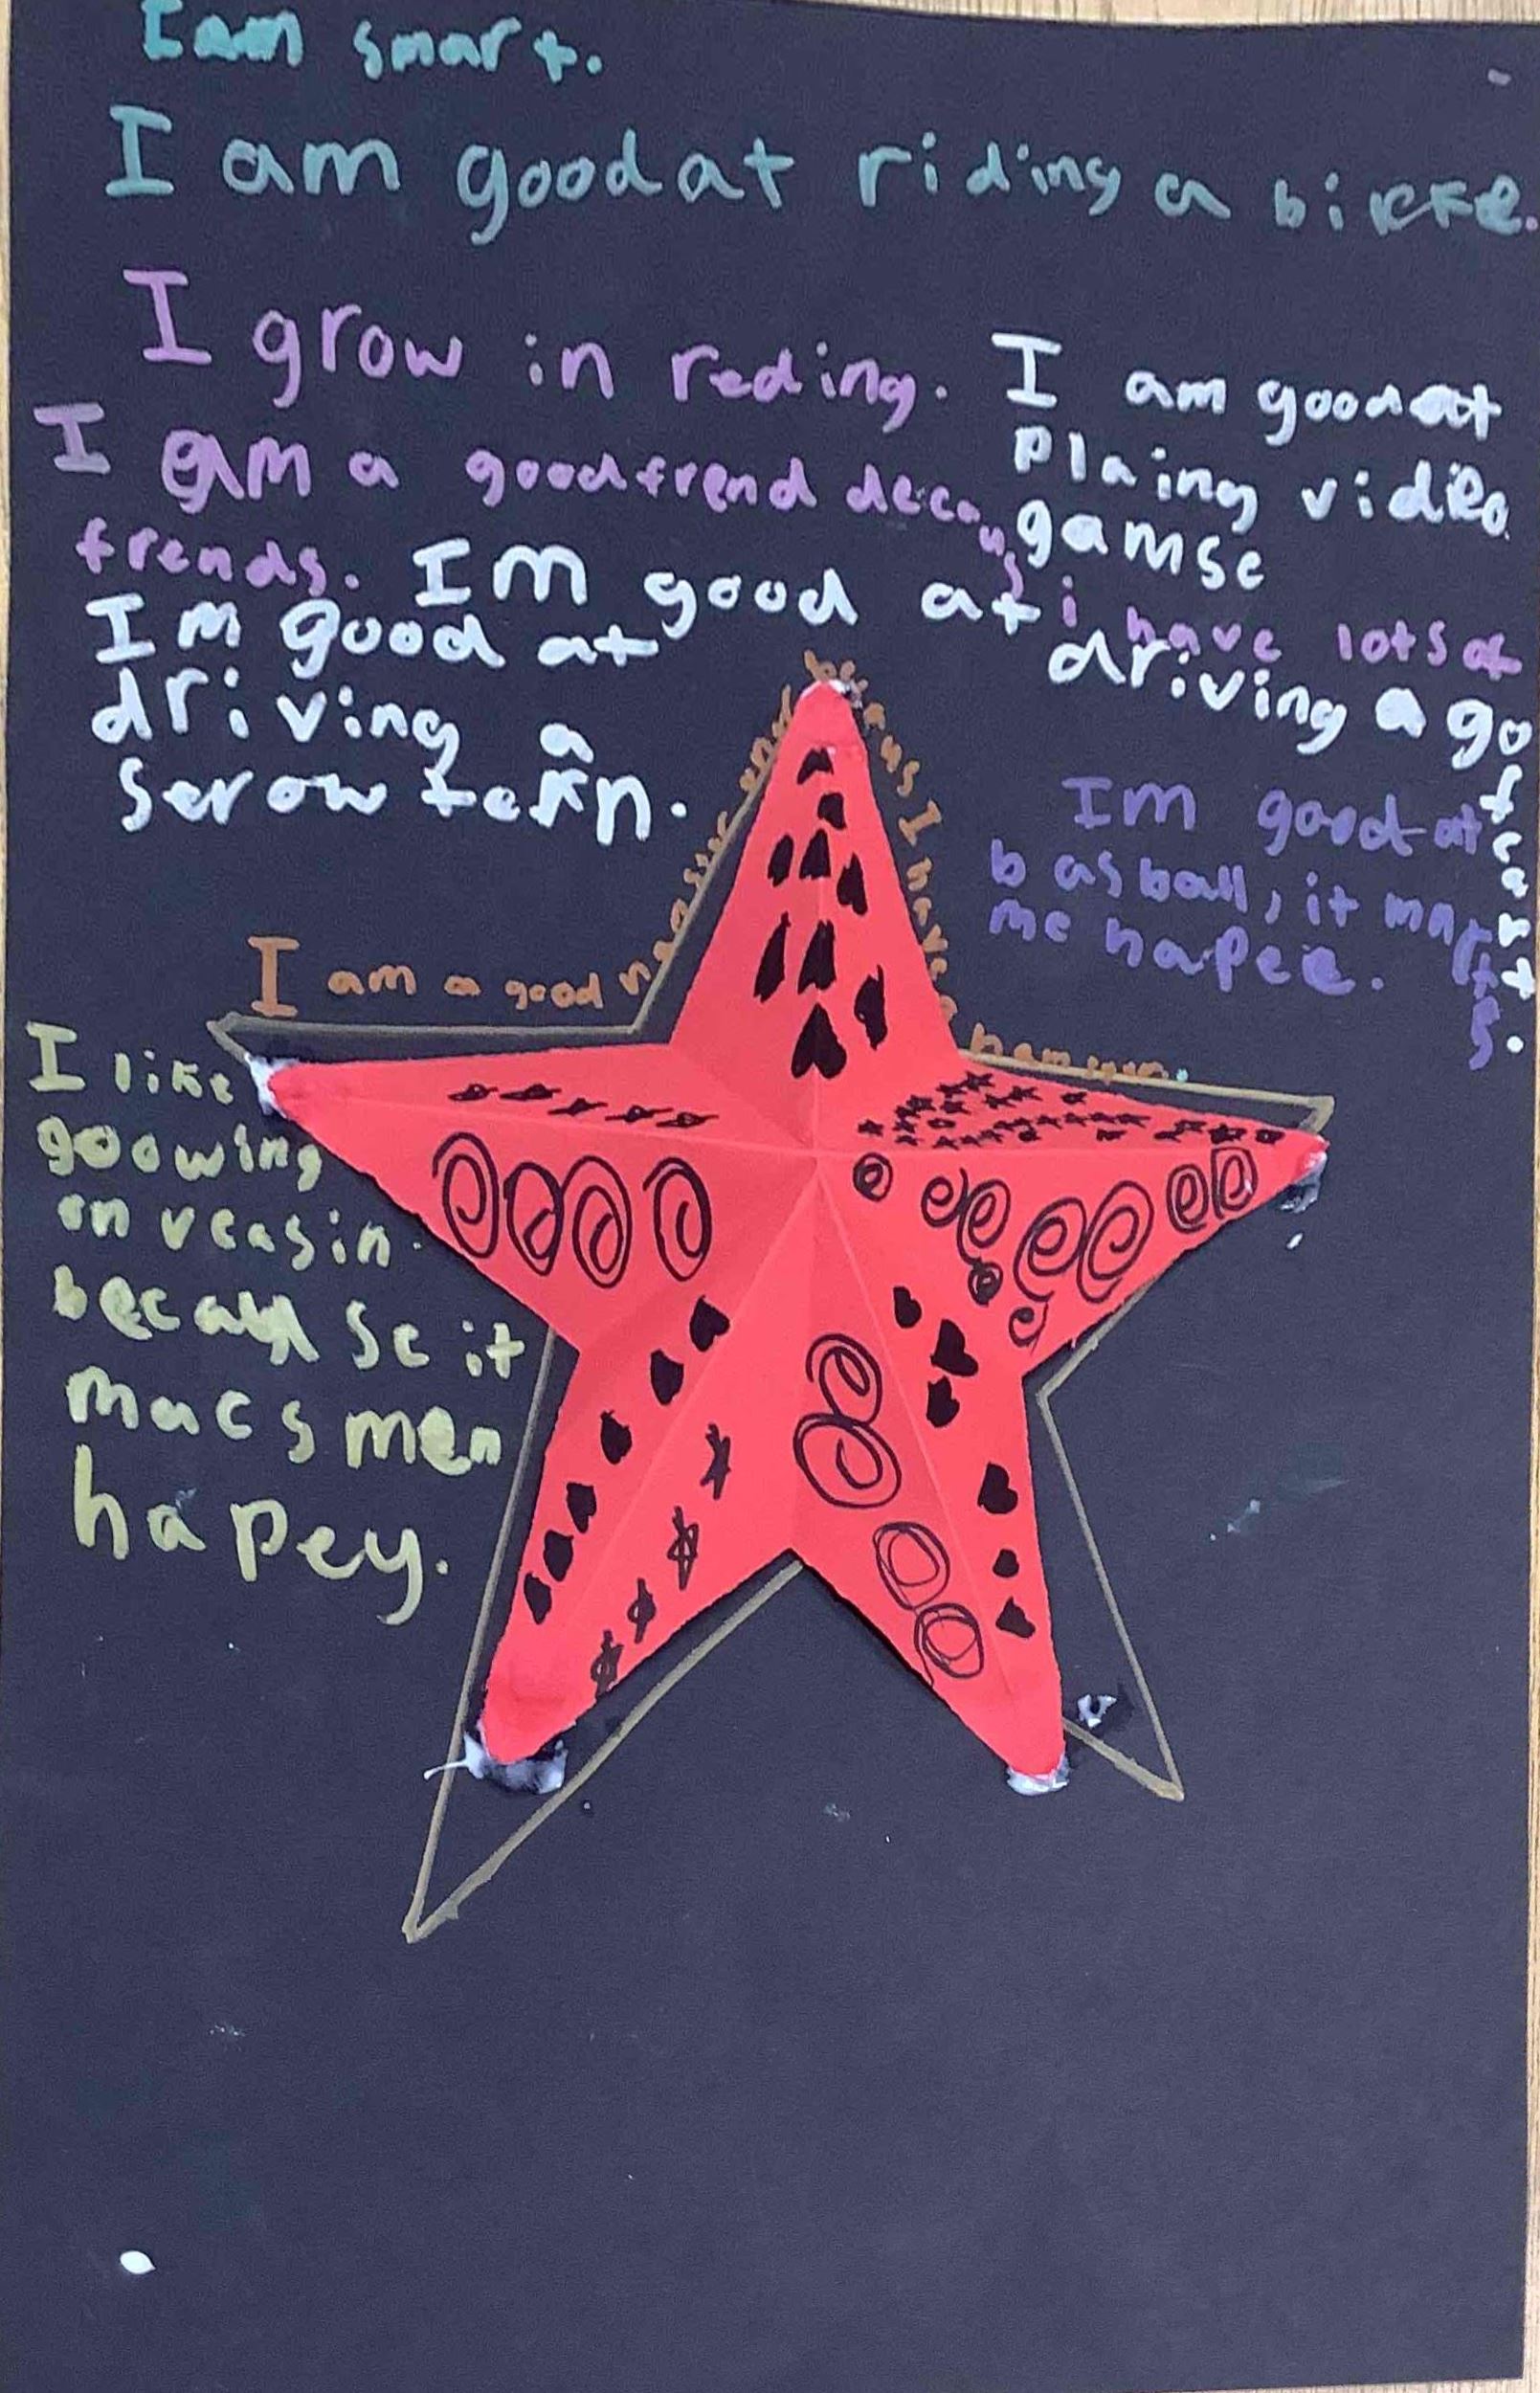 I am smart.
I am good at riding a bicke.
I grow in reding.
I am a good frend decaus i have lots of
frends.
I am good at
plaing vidieo
gamse
Im good at driving a gofcarts.
Im good at
driving a
Serow
Im good at
basball, it
me hapee.
I am a good
us I have
I like
goowing
on veasin
because it
macs men
hapey.